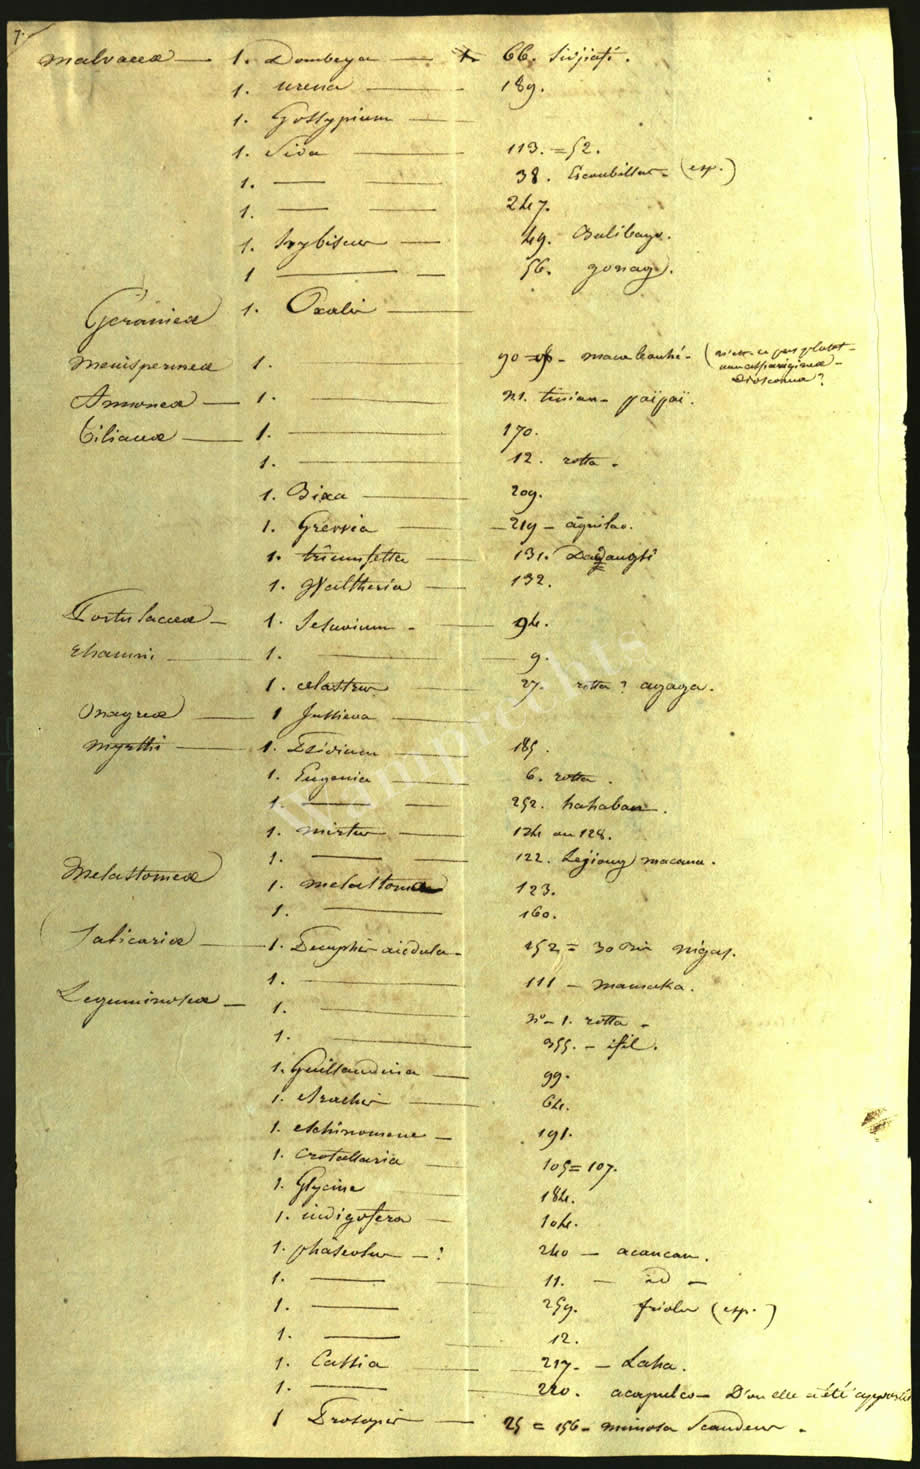 7.
malvaceæ — 1. Dombeya — 66. Sidjiati.
1. urena — 189.
1. Gossypium —
1. Sida — 113. = 52.
1. — — 38. Escoubillas - (esp.)
1. — — 247.
1. hybiscus — 49. Balibago.
1 — — 56. gonag.
Géranieæ 1. Oxalis —
Menispermeæ 1. — 90 - (n'est-ce pas plutot une asparaginea - dioscorea?
Annoneæ — 1. — tinian - païpaï.
tiliaceæ — 1. — 170.
1. — 12. rotta -
1. Bixa — 209.
1. Grewia — 219 - aguilao.
1. triumfetta — 131. Dadangsi
1. Waltheria — 132.
Portulaceæ - 1. Sesuvium - 94.
Rhamni — 1. — 9.
1. celastrus — 27. rotta? agaga.
Onagreæ — 1 Jussieua —
myrthi — 1. Psidium — 185.
1. Eugenia — 6. rotta.
1. — — 252. hahabau.
1. mirtus — 124 ou 128.
1. — — 122. Legiong macana.
Melastomeæ 1. melastoma 123.
1. — 160.
Salicariæ — 1. Pemphis aidula - 152 = 30 nigas.
1. — 111 - mamaka.
Leguminoseæ — 1. — n° - 1. rotta -
1. — 355. - ifil.
1. Guillandina — 99.
1. Arachis — 64.
1. eschinomene — 191.
1. crotallaria — 105 = 107.
1. Glycine — 184.
1. indigofera — 104.
1. phaseolus — ? 240 — acancan.
1. — — 11. — id -
1. — 259. frioles (esp.)
1. — 12.
1. Cassia — 217. - Laha.
1. — — 220. acapulco - D'ou elle a été apportée
1 Prosopis — 25 = 156 - mimosa Scandens.
Wamprechts